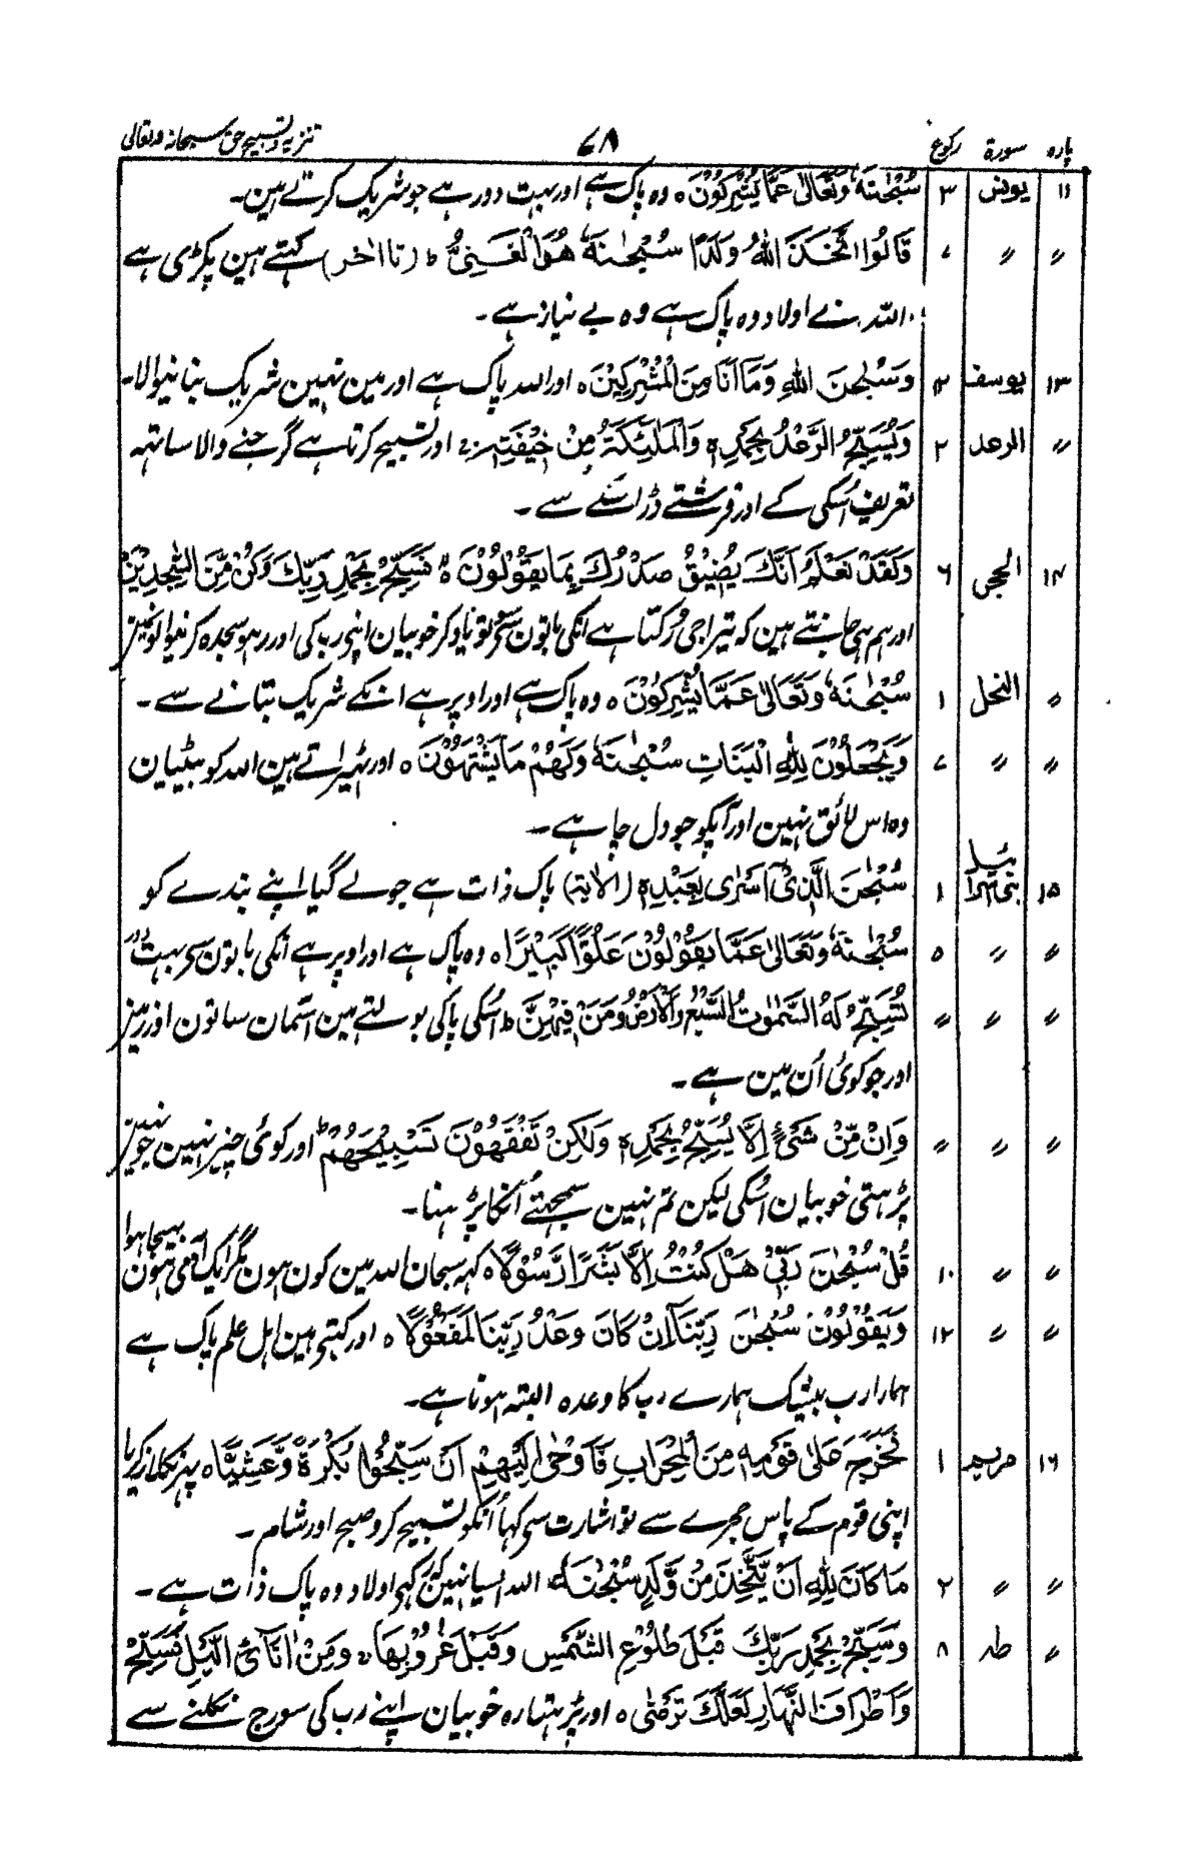 پارہ سورۃ رکوع ۷۸ تنزیہ و تسبیح حق سبحانہ وتعالی
۱۱ یونس ۳ سُبْحٰنَهٗ وَتَعَالٰى عَمَّا يُشْرِكُوْنَ ہ وہ پاک ہے اور بہت دور ہے جو شریک کرتے ہین۔
〃 〃 ۷ قَالُوا اتَّخَذَ اللّٰهُ وَلَدًا سُبْحٰنَهٗ هُوَ الْغَنِيُّ ط (تا اٰخر) کہتے ہین پکڑی ہے
اللہ نے اولاد وہ پاک ہے وہ بے نیاز ہے۔
۱۳ یوسف ۱۲ وَسُبْحٰنَ اللّٰهِ وَمَا اَنَا مِنَ الْمُشْرِكِيْنَ ہ اور اللہ پاک ہے اور مین نہین شریک بتانیوالا۔
〃 الرعد ۲ وَيُسَبِّحُ الرَّعْدُ بِحَمْدِهٖ وَالْمَلٰٓئِكَةُ مِنْ خِيْفَتِهٖ ج اور تسبیح کرتا ہے گرجنے والا ساتھہ
تعریف اُسکی کے اور فرشتے ڈر اسکے سے۔
۱۴ الحجر ۶ وَلَقَدْ نَعْلَمُ اَنَّكَ يَضِيْقُ صَدْرُكَ بِمَا يَقُوْلُوْنَ ہ فَسَبِّحْ بِحَمْدِ رَبِّكَ وَكُنْ مِّنَ السّٰجِدِيْنَ
اور ہم ہی جانتے ہین کہ تیرا جی رُکتا ہے انکی باتون سے تو یاد کر خوبیان اپنے رب کی اور رہو سجدہ کرنیوالونمین
〃 النحل ۱ سُبْحٰنَهٗ وَتَعَالٰى عَمَّا يُشْرِكُوْنَ ہ وہ پاک ہے اور اوپر ہے انکے شریک بتانے سے۔
〃 〃 ۷ وَيَجْعَلُوْنَ لِلّٰهِ الْبَنَاتِ سُبْحٰنَهٗ وَلَهُمْ مَا يَشْتَهُوْنَ ہ اور ٹہیراتے ہین اللہ کو بیٹیان
وہ اس لائق نہین اور آپکو جو دل چاہے۔
۱۵ بنی اسرائیل ۱ سُبْحٰنَ الَّذِيْٓ اَسْرٰى بِعَبْدِهٖ (الاٰیۃ) پاک ذات ہے جو لے گیا اپنے بندے کو
〃 〃 ۵ سُبْحٰنَهٗ وَتَعَالٰى عَمَّا يَقُوْلُوْنَ عُلُوًّا كَبِيْرًا ہ وہ پاک ہے اور اوپر ہے انکی باتون سے بہت دور
〃 〃 〃 تُسَبِّحُ لَهُ السَّمٰوٰتُ السَّبْعُ وَالْاَرْضُ وَمَنْ فِيْهِنَّ ط اُسکی پاکی بولتے ہین آسمان ساتون اور زمین
اور جو کوئی اُن مین ہے۔
〃 〃 〃 وَاِنْ مِّنْ شَيْءٍ اِلَّا يُسَبِّحُ بِحَمْدِهٖ وَلٰكِنْ تَفْقَهُوْنَ تَسْبِيْحَهُمْ ط اور کوئی چیز نہین جو نہین
پڑہتی خوبیان اُسکی لیکن تم نہین سمجھتے اُنکا پڑہنا۔
〃 〃 ۱۰ قُلْ سُبْحٰنَ رَبِّيْ هَلْ كُنْتُ اِلَّا بَشَرًا رَّسُوْلًا ہ کہہ سبحان اللہ مین کون ہون مگر ایک آدمی ہون بہیجا ہوا
〃 〃 ۱۲ وَيَقُوْلُوْنَ سُبْحٰنَ رَبِّنَآ اِنْ كَانَ وَعْدُ رَبِّنَا لَمَفْعُوْلًا ہ اور کہتے ہین اہل علم پاک ہے
ہمارا رب بیشک ہمارے رب کا وعدہ البتہ ہونا ہے۔
۱۶ مریم ۱ فَخَرَجَ عَلٰى قَوْمِهٖ مِنَ الْمِحْرَابِ فَاَوْحٰى اِلَيْهِمْ اَنْ سَبِّحُوْا بُكْرَةً وَّعَشِيًّا ہ پہر نکلا زکریا
اپنی قوم کے پاس حجرے سے تو اشارت سے کہا اُنکو تسبیح کرو صبح اور شام۔
〃 〃 ۲ مَا كَانَ لِلّٰهِ اَنْ يَّتَّخِذَ مِنْ وَّلَدٍ سُبْحٰنَهٗ اللہ ایسا نہین کہ رکہے اولاد وہ پاک ذات ہے۔
〃 طہ ۸ وَسَبِّحْ بِحَمْدِ رَبِّكَ قَبْلَ طُلُوْعِ الشَّمْسِ وَقَبْلَ غُرُوْبِهَا ج وَمِنْ اٰنَآئِ الَّيْلِ فَسَبِّحْ
وَاَطْرَافَ النَّهَارِ لَعَلَّكَ تَرْضٰى ہ اور پڑہتا رہ خوبیان اپنے رب کی سورج نکلنے سے